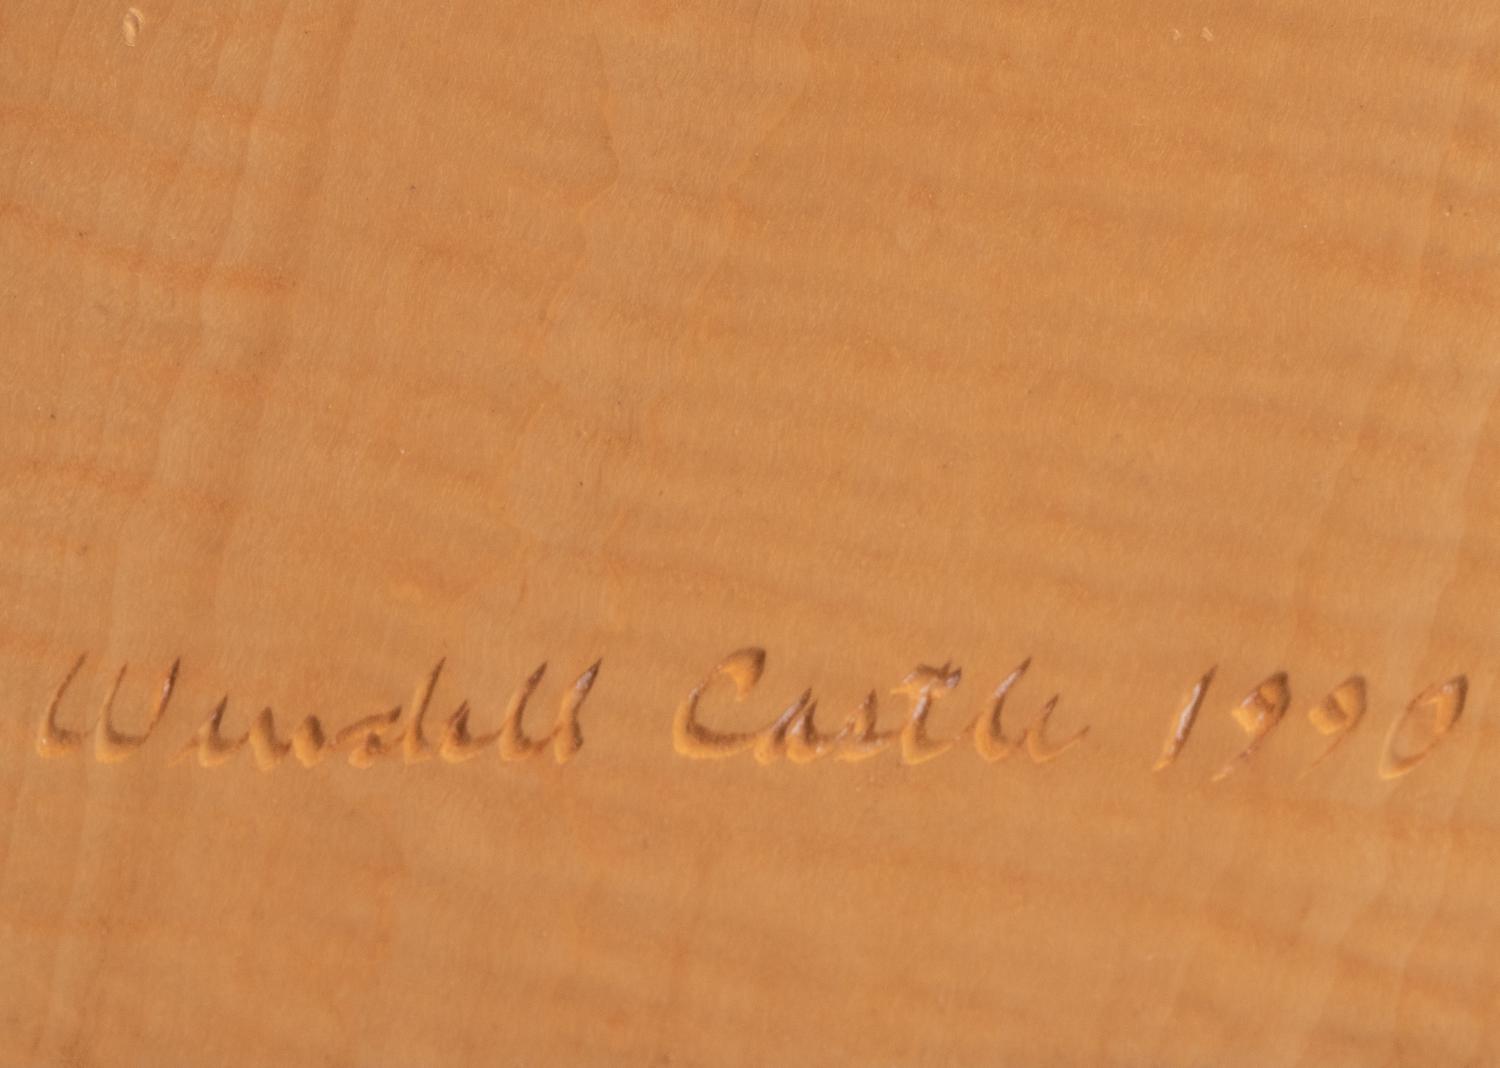 Wendell Castle 1990